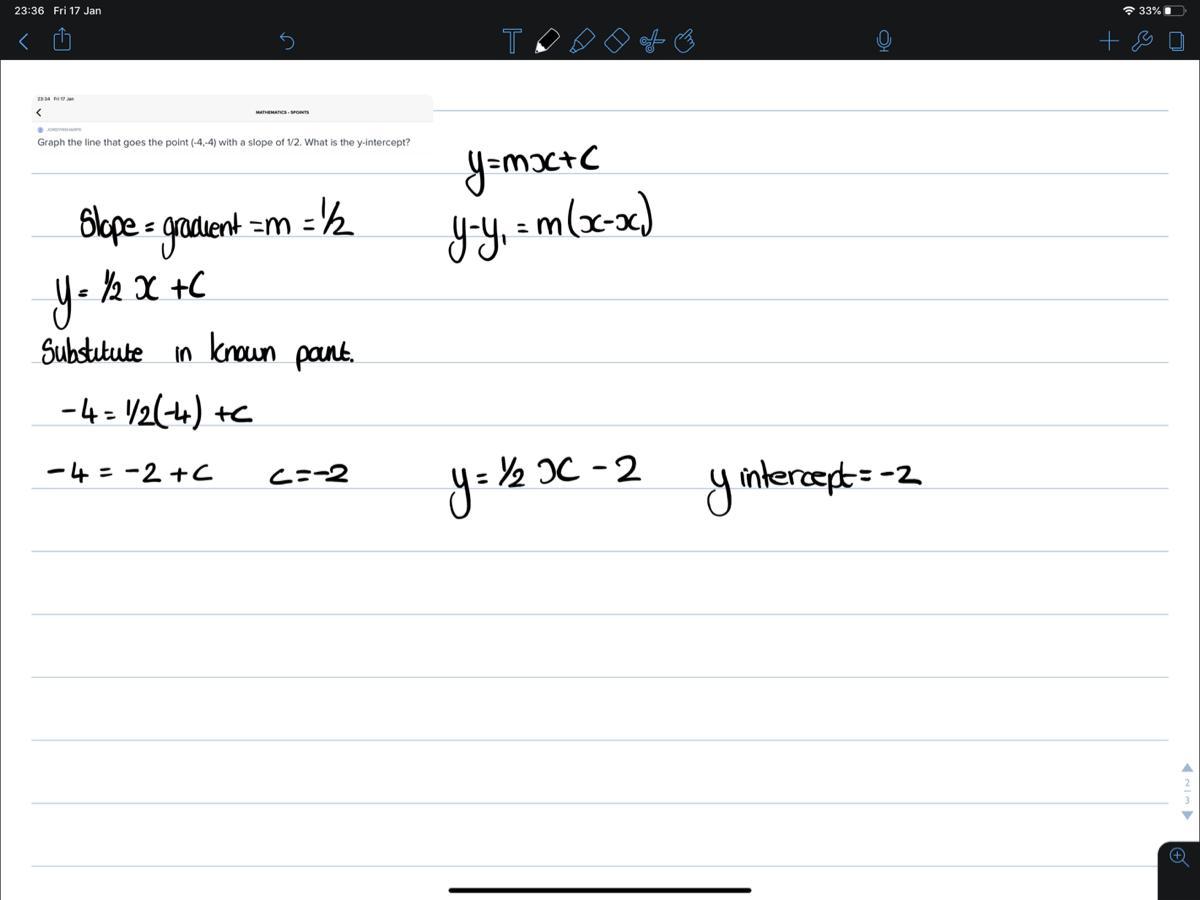 23:36 Fri 17 Jan
33%
23:34 Fri 17 Jan
MATHEMATICS - 5POINTS
Graph the line that goes the point (-4,-4) with a slope of 1/2. What is the y-intercept?
y=mx+c
Slope = gradient = m = 1/2
y-y₁ = m(x-x₁)
y = 1/2 x + c
Substitute in known point.
-4 = 1/2(-4) + c
-4 = -2 + c c = -2
y = 1/2 x - 2
y intercept = -2
2
3